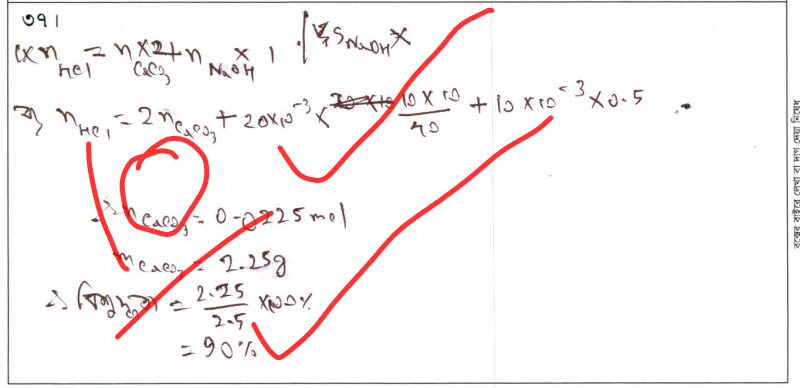 ৩৭।
n HCl = n CaCO₃ × 2 + n NaOH × 1
বা, n HCl = 2 n CaCO₃ + 20×10⁻³ × (10×10)/40 + 10×10⁻³ × 0.5
∴ n CaCO₃ = 0.0225 mol
m CaCO₃ = 2.25g
∴ বিশুদ্ধতা = 2.25/2.5 × 100%
= 90%
বক্সের বাইরে লেখা বা দাগ দেয়া নিষেধ